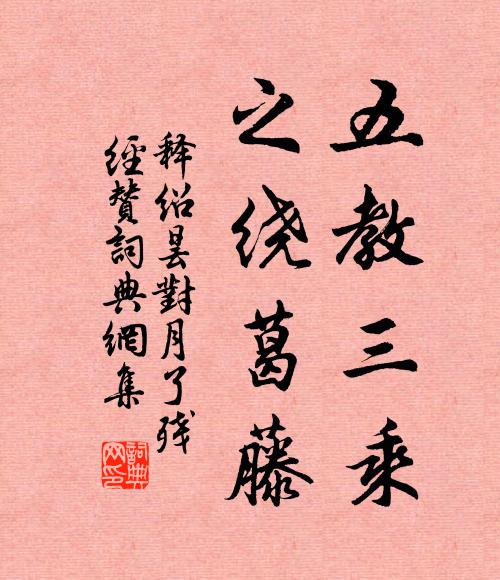 五教三乘
之绕葛藤
释绍昙對月了残
經贊詞典網集
詞典
网印